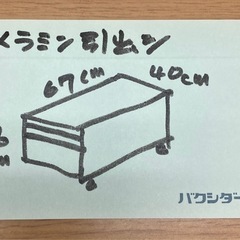 メラミン引出シ
67cm
40cm
バクシダー